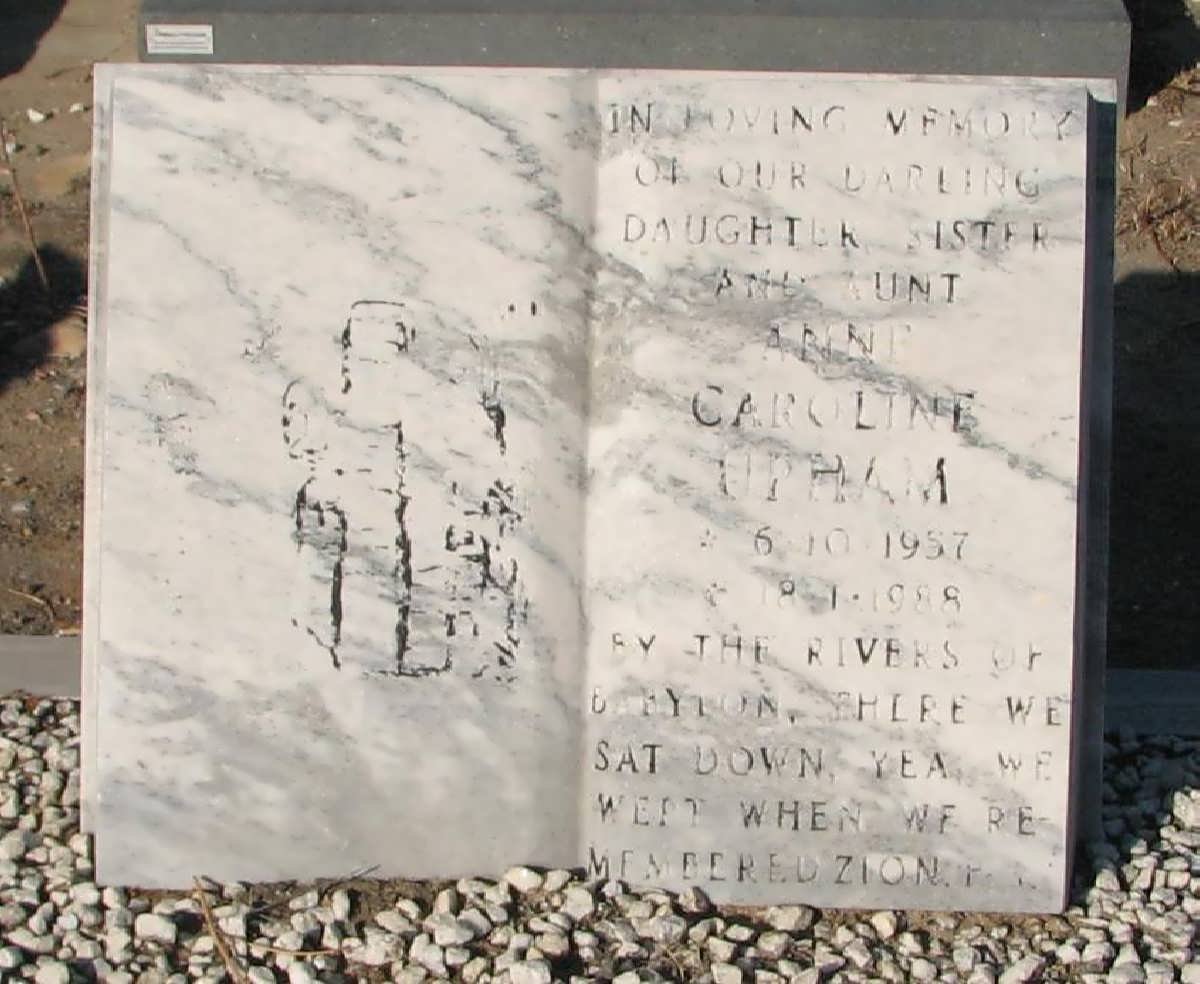 IN LOVING MEMORY
OF OUR DARLING
DAUGHTER, SISTER
AND AUNT
ANNE
CAROLINE
UPHAM
* 6·10·1957
8·1·1988
BY THE RIVERS OF
BABYLON, THERE WE
SAT DOWN, YEA, WE
WEPT WHEN WE RE-
MEMBERED ZION.